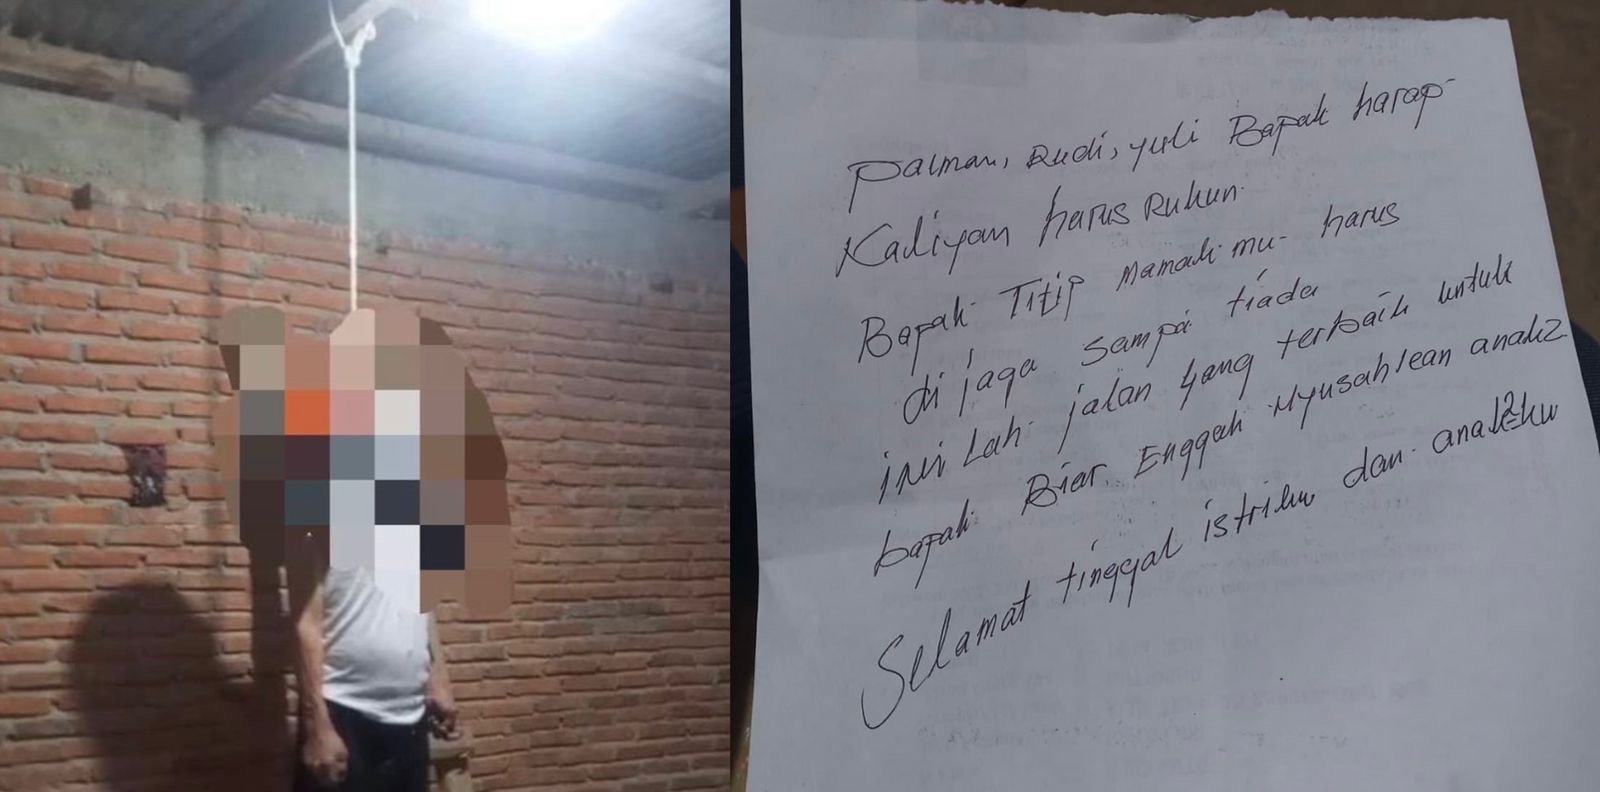 Paiman, Rudi, yuli Bapak harap
Kaliyan harus Rukun
Bapak Titip Mamak mu harus
di jaga sampai tiada
ini Lah jalan yang terbaik untuk
bapak Biar Enggak Nyusahkan anak2
Selamat tinggal istriku dan anak2ku